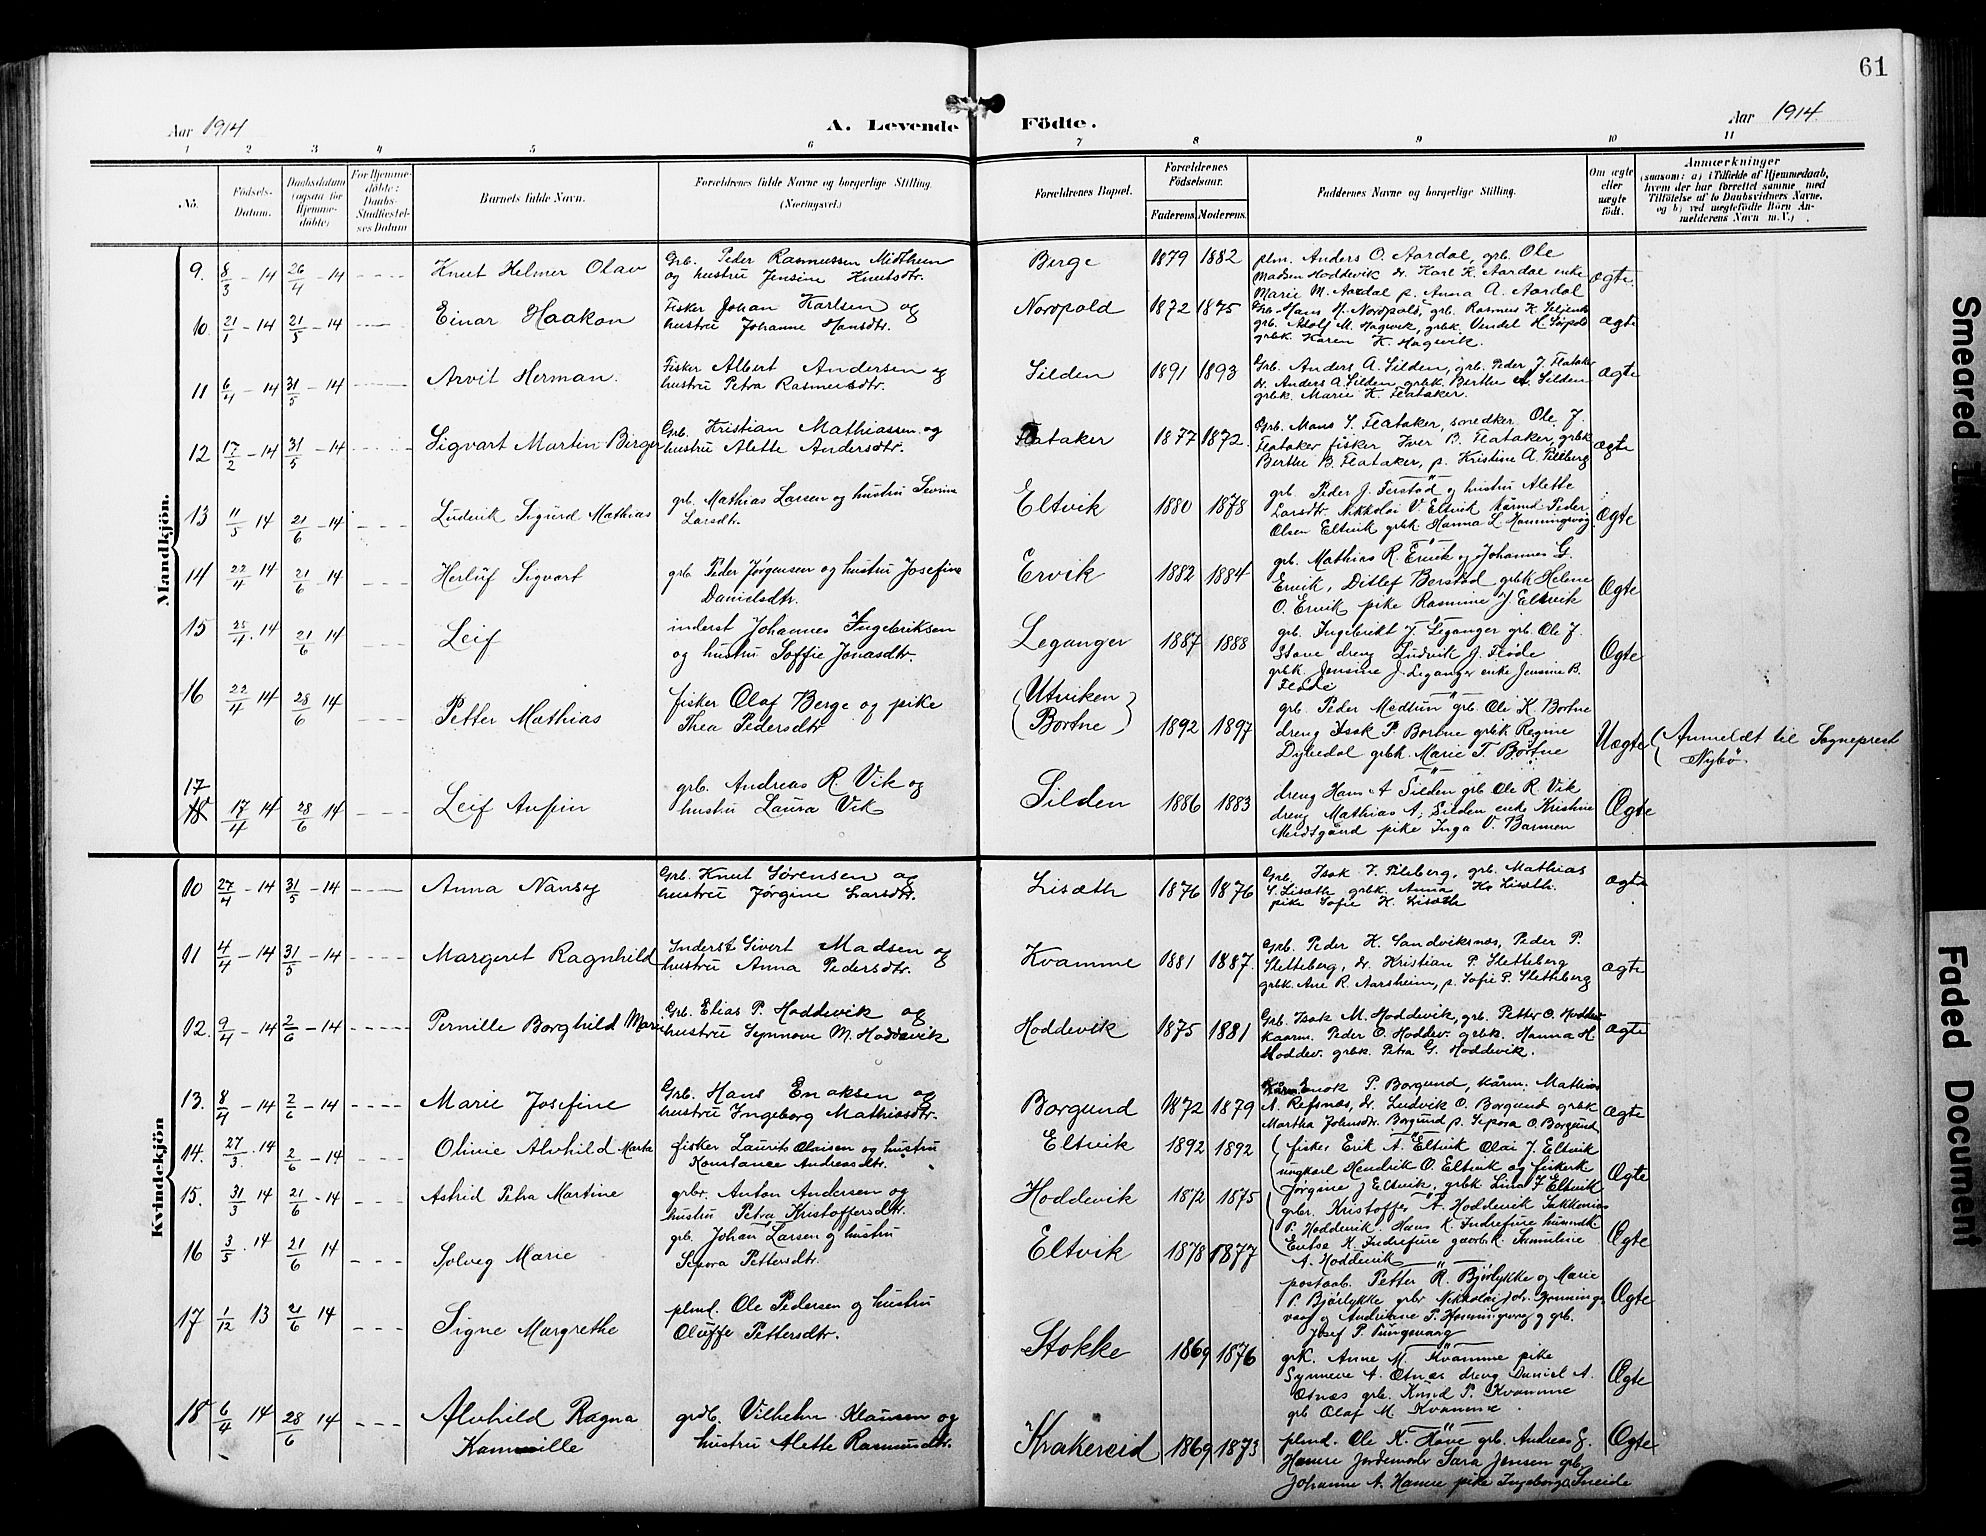 61
Aar 1914
A. Levende Födte.
Aar 1914
1 2 3 4 5 6 7 8 9 10 11
No.
Födsels-Datum.
Daabsdatum (ogsaa for Hjemmedøbte)
For Hjemmedøbte: Daabs-Stadfestelses Datum
Barnets fulde Navn.
Forældrenes fulde Navne og borgerlige Stilling. (Næringsvei.)
Forældrenes Bopæl.
Forældrenes Födselsaar.
Faderens.
Moderens.
Faddernes Navne og borgerlige Stilling.
Om ægte eller uægte födt.
Anmærkninger
(saasom: a) i Tilfælde af Hjemmedaab, hvem der har forrettet samme, med Tilföielse af to Daabsvidners Navne, og b) ved uægtefödte Börn Anmelderens Navn m. V.)
Mandkjön.
9. 8/3 - 14 26/4 - 14 Knut Helmer Olav
Grb. Peder Rasmussen Midthun
og hustru Jensine Knutsdtr.
Berge 1879 1882
plm. Anders O. Aardal, grb. Ole
Madsen Hoddevik dr. Karl K. Aardal enke
Marie M. Aardal p. Anna A. Aardal
ægte
10. 21/1 - 14 21/5 - 14 Einar Haakon
Fisker Johan Karlsen og
hustru Johanne Hansdtr.
Nordpold 1872 1875
Grb. Hans H. Nordpold, grb. Rasmus K. Seljend
grb. Adolf M. Hagevik, grbk. Vendel H. Sørpold
grbk. Karen K. Hagevik.
ægte
11 6/4 - 14 31/5 - 14 Arvit Herman.
Fisker Albert Andersen og
hustru Petra Rasmusdtr.
Silden 1891 1893
Grb. Anders A. Silden, grb. Peder J. Flataker
dr. Anders A. Silden grbk. Berthe A. Silden
grbk. Marie K. Flataker.
ægte
12 17/2 - 14 31/5 - 14 Sigvart Martin Birger
Grb. Kristian Mathiassen og
hustru Alette Andersdtr.
Flataker 1877 1872.
Grb. Mons S. Flataker, snedker Ole J.
Flataker fisker Iver B. Flataker, grbk
Berthe B. Flataker, p. Kristine A. Pilleberg
ægte
13 11/5 14 21/6 - 14 Ludvik Sigurd Mathias
grb. Mathias Larsen og hustru Severine
Larsdtr.
Eltvik 1880 1878
grb Peder J. Ferstad og hustru Alette
Larsdtr. Nikkolai V Eltvik kårmd Peder
Olsen Eltvik grbk Hanna L. Honningsvog
Ægte
14 22/4 14 21/6 14 Herluf Sigvart
grb. Peder Jørgensen og hustru Josefine
Danielsdtr.
Ervik 1882 1884
grb. Mathias R. Ervik og Johannes G.
Ervik, Ditlef Berstad grbk Helene
O. Ervik pike Rasmine J. Eltvik
Ægte
15 25/4 14 21/6 14 Leif
inderst Johannes Ingebriksen
og hustru Soffie Jonasdtr.
Leganger 1887 1888
grb. Ingebrikt J. Leganger grb. Ole J.
Stave dreng Ludvik J. Fløde
grbk Jensine J. Leganger enke Jensine B.
Fløde
Ægte
16 22/4 14 28/6 14 Petter Mathias
fisker Olaf Berge og pike
Thea Pedersdtr
(Utviken Bortne) 1892 1897
grb. Peder Medtun grb Ole K. Bortne
dreng Isak P Bortne grbk Regine
Dyledal grbk. Marie T. Bortne
Uægte
(Anmeldt til Sogneprest
Nybø.
17
18 17/4 14 28/6 14 Leif Anfin
grb. Andreas R. Vik og
hustru Laura Vik
Silden 1886 1883
dreng Hans A Silden grb Ole R. Vik
dreng Mathias A. Silden enke Kristine
Meidtgård pike Inga V. Barmen
Ægte
Kvindekjön
10 27/4 - 14 31/5 - 14 Anna Nansy
Grb. Knut Sørensen og
hustru Jørgine Larsdtr.
Lisæth 1876 1876
Grb. Isak J. Pileberg, grb. Mathias
S. Lisæth grbk. Anna Ko Lisæth.
pike Sofie H. Lisæth
ægte
11 4/4 - 14 31/5 - 14 Margeret Ragnhild
Inderst Sivert Madsen og
hustru Anna Pedersdtr.
Kvamme 1881 1887
Grb. Peder K. Sandviksnæs, Peder P.
Sletteberg, dr. Kristian P. Sletteberg
grbk. Ane R. Aarsheim, p. Sofie P. Sletteberg
ægte
12. 9/4 - 14 2/6 - 14 Pernille Borghild Marie
Grb. Elias P. Hoddevik og
hustru Synnøve M. Hoddevik
Hoddevik 1875 1881
Grb. Isak M. Hoddevik, grb. Petter O. Hoddevik
kaarm. Peder O. Hoddev. grbk. Hanna H
Hoddev. grbk. Petra G. Hoddevik.
ægte
13. 8/4 - 14 2/6 - 14 Marie Josefine
Grb. Hans Enoksen og
hustru Ingeborg Mathiasdtr.
Borgund 1872 1879
Kårm Enok P. Borgund, kårm. Mathias
A. Refsnæs, dr. Ludvik O. Borgund grbk
Martha Johnsdtr. Borgund p. Sepora O. Borgund
ægte
14. 27/3 14 2/6 - 14 Olivie Alvhild Marta
fisker Laurits Olaisen og hustru
Konstanse Andreasdtr.
Eltvik 1892 1892
fisker Erik A. Eltvik Olai J. Eltvik
ungkarl Hendrik O. Eltvik og fiskerk
Jørgine J Eltvik, grbk Lina J Eltvik
Ægte
15. 31/3 14 21/6 - 14 Astrid Petra Martine
grbr. Anton Andersen og
hustru Petra Kristoffersdtr.
Hoddevik 1872 1875
grbr. Kristoffer A. Hoddevik Sakkarias
P. Hoddevik. Hans K. Indrefure husmdk
Eutse K. Indrefure gaarbk Samuline
A. Hoddevik
Ægte
16 3/5 14 21/6 14 Solveg Marie
grb. Johan Larsen og hustru
Sepora Pettersdtr.
Eltvik 1878 1877
postaab. Petter R. Bjørlykke og Marie
P. Bjørlykke grbr Nikkolai J. Honnings-
vaag og Andrianne P. Honningsvog g grb.
Josef P. Tungevaag
Ægte
17 1/12 13 21/6 14 Signe Margrethe
plmd. Ole Pedersen og hustru
Oluffe Pettersdtr.
Stokke 1869 1876
grk. Anne M. Kvamme pike
Synneve A. Otnæs dreng Daniel A.
Otnæs grb. Knud P. Kvamme
grb Olaf M Kvamme.
Ægte
18 6/4 14 28/6 14 Alvhild Ragna
Kammille
grdb. Vilhelm Klausen og
hustru Alette Rasmusdtr.
Krakereid 1869 1873
plmd. Ole K. Høve grb. Andreas G.
Hamre Jordemoder Sara Jensen grb.
Johanne A. Hamre pike Ingeborg Sneide
Ægte
Smeared
Faded Document